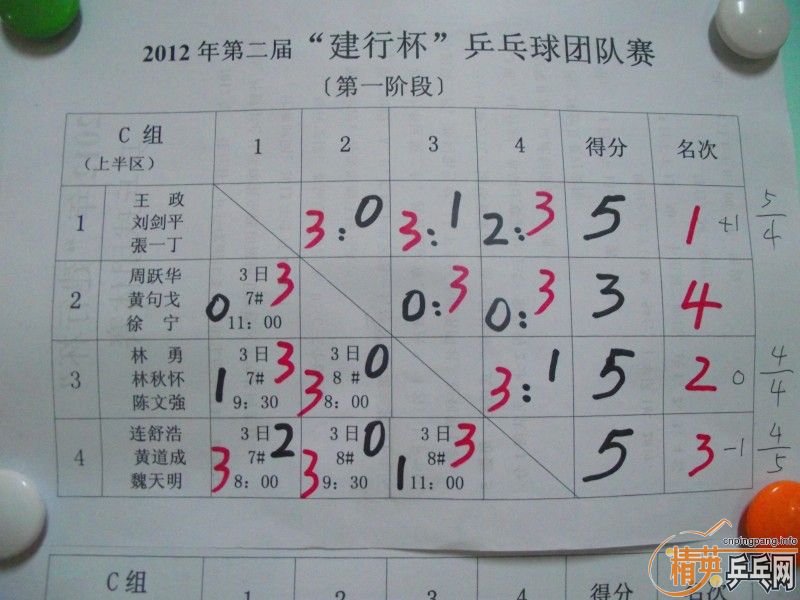 2012年第二届“建行杯”乒乓球团队赛
〔第一阶段〕
C 组
（上半区）
1 2 3 4 得分 名次
1
王 政
刘剑平
張一丁
3:0 3:1 2:3 5 1 +1 5/4
2
周跃华
黄句戈
徐 宁
3日
7#
11：00
0 3
0:3 0:3 3 4
3
林 勇
林秋怀
陈文強
3日
7#
9：30
1 3
3日
8 #
8：00
3 0
3:1 5 2 0 4/4
4
连舒浩
黄道成
魏天明
3日
7#
8：00
3 2
3日
8#
9：30
3 0
3日
8#
11：00
1 3
5 3 -1 4/5
C 组
1 2 3 4 得分 名次
cnpingpang.info
精英乒乓网